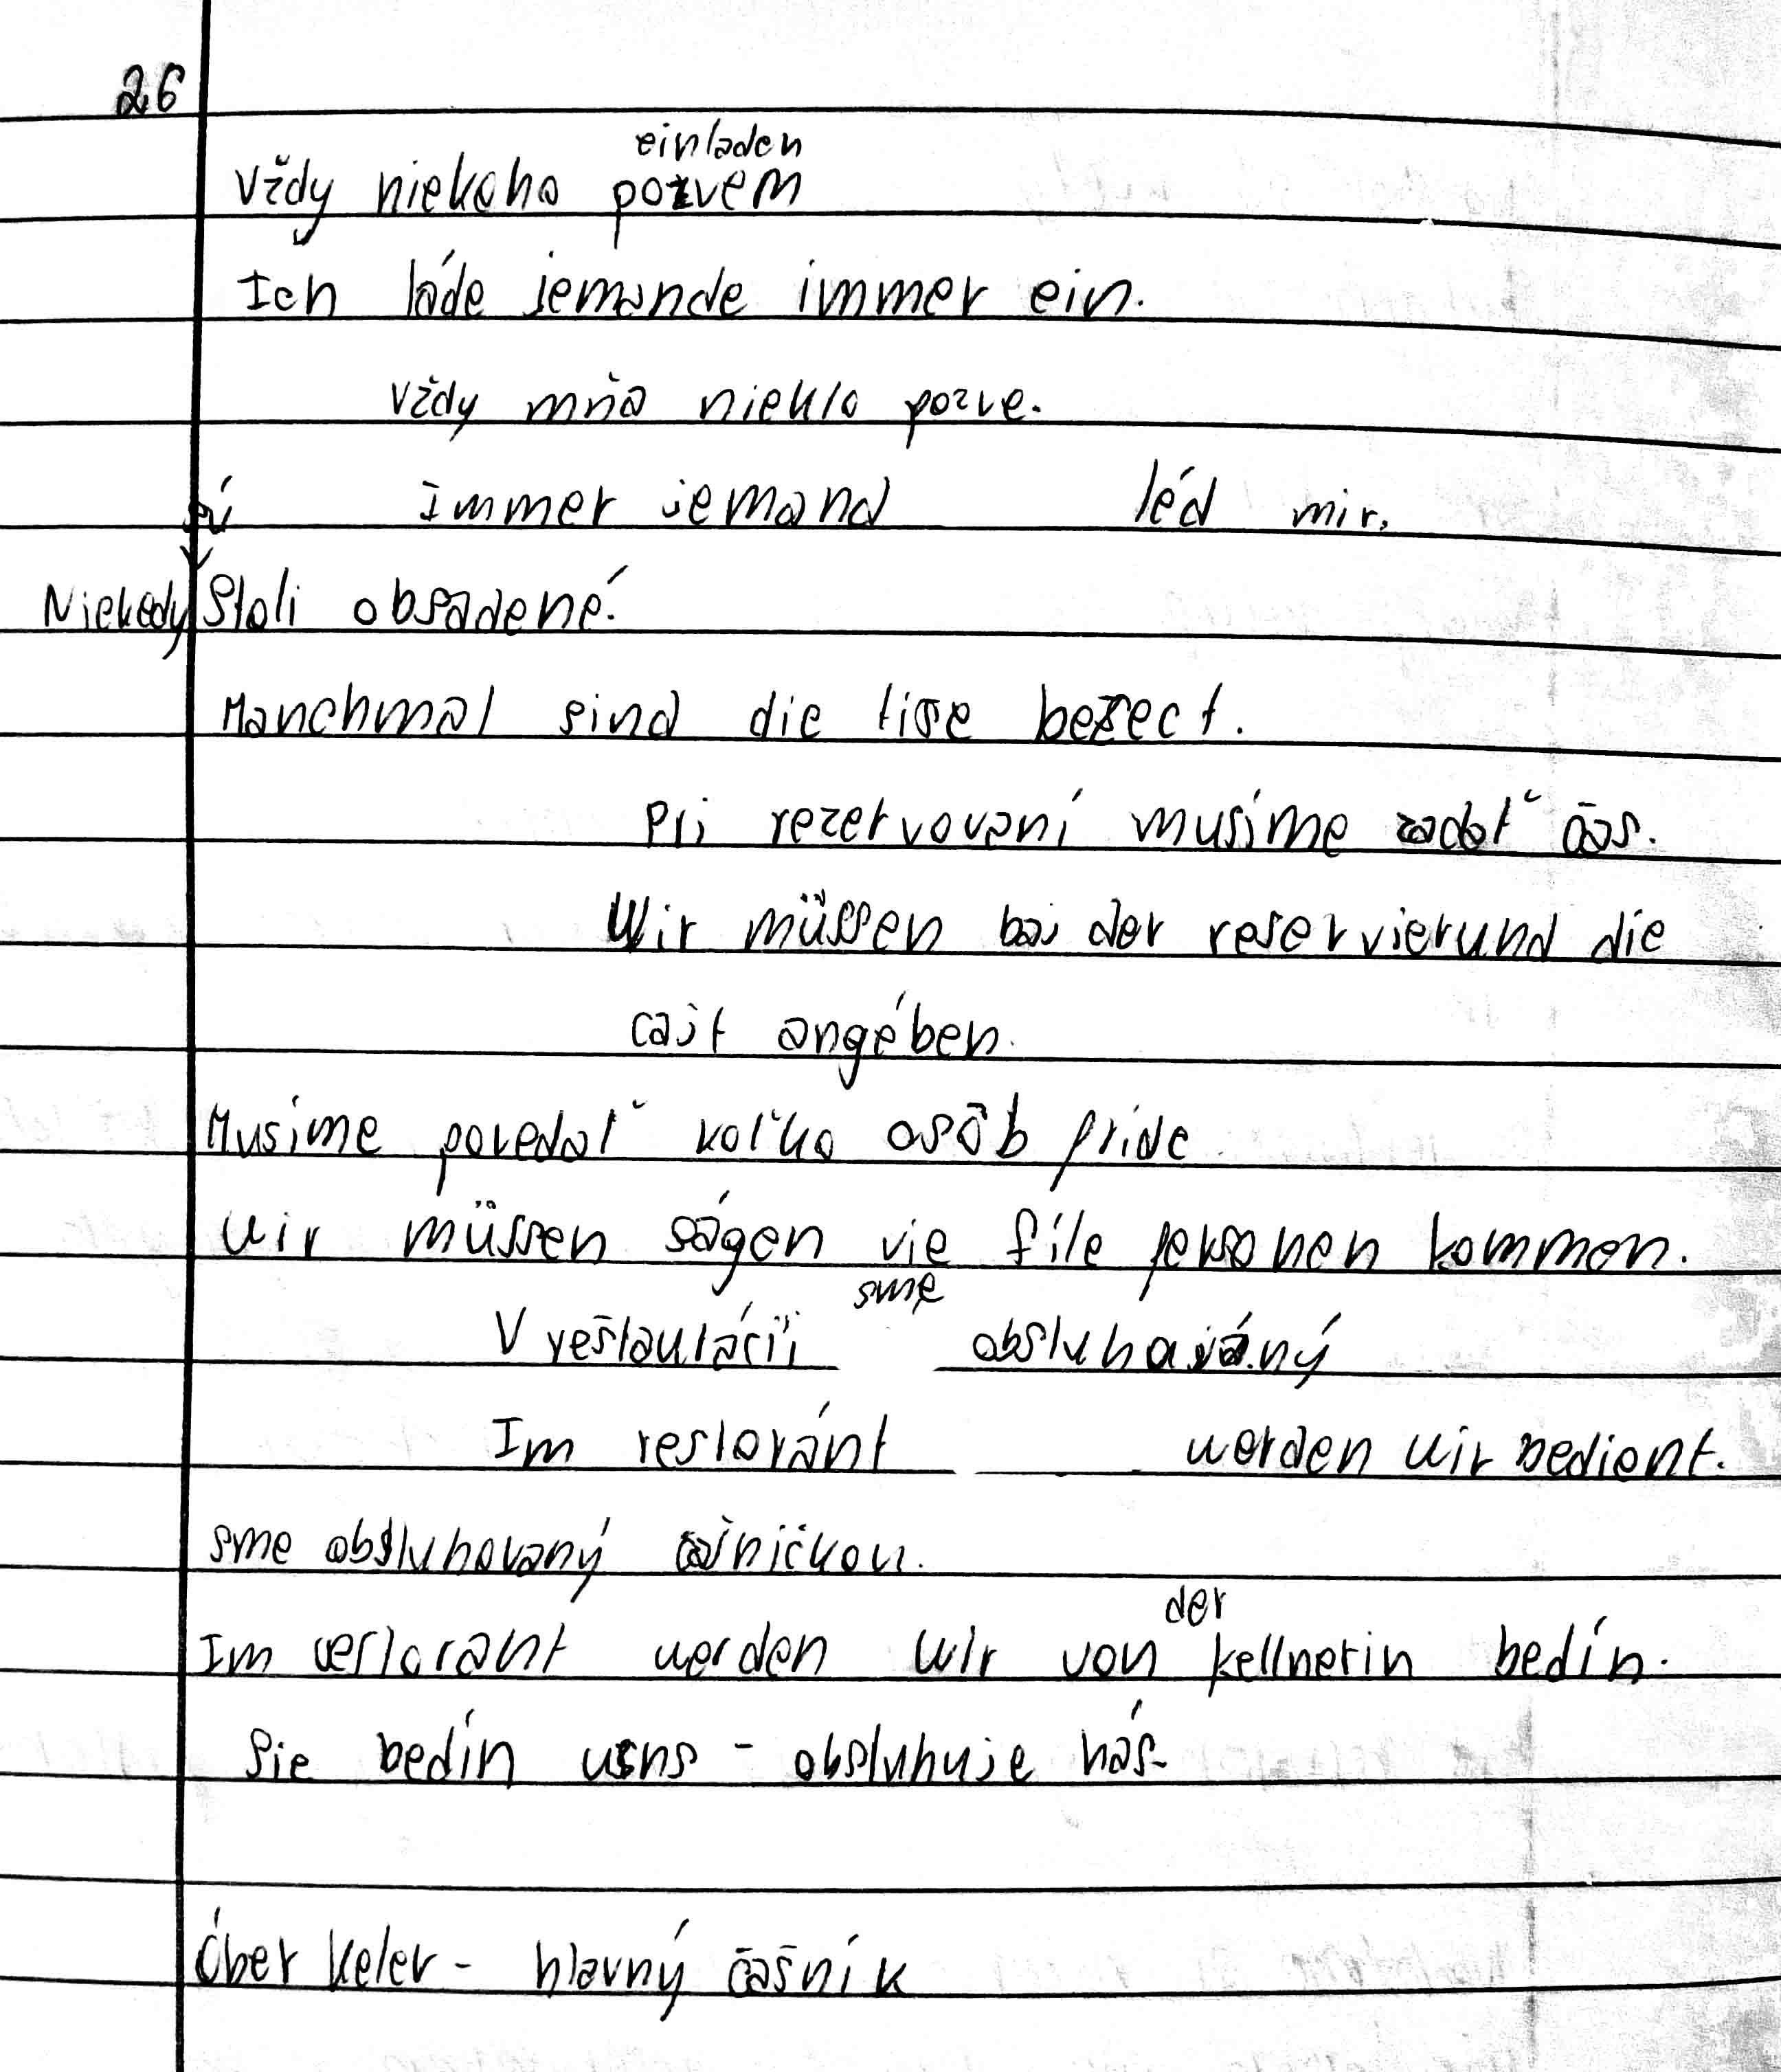 26
einladen
Vždy niekoho pozvem
Ich láde jemande immer ein.
Vždy mňa niekto pozve.
Immer jemand léd mir.
sú
Niekedy Stoli obsadené.
Manchmal sind die tise besect.
Pri rezervovaní musíme zadať čas.
Wir müssen bai der reservierund die
cait angében.
Musíme povedať koľko osôb príde
Wir müssen ságen vie file personen kommen.
sme
V reštaurácií obsluhovaný
Im restoránt werden wir bedient.
sme obsluhovaný čašničkou.
der
Im restorant werden wir von kellnerin bedín.
Sie bedín uns - obsluhuje nás.
Óber keler - hlavný čašník